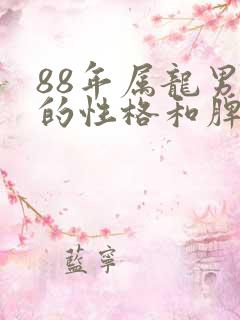 88年属龍男
的性格和脾
藍寧